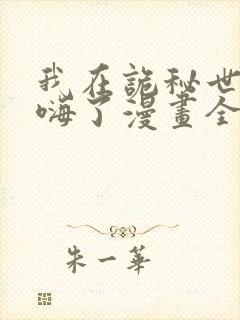 我在詭秘世
嗨了漫畫全
朱一華